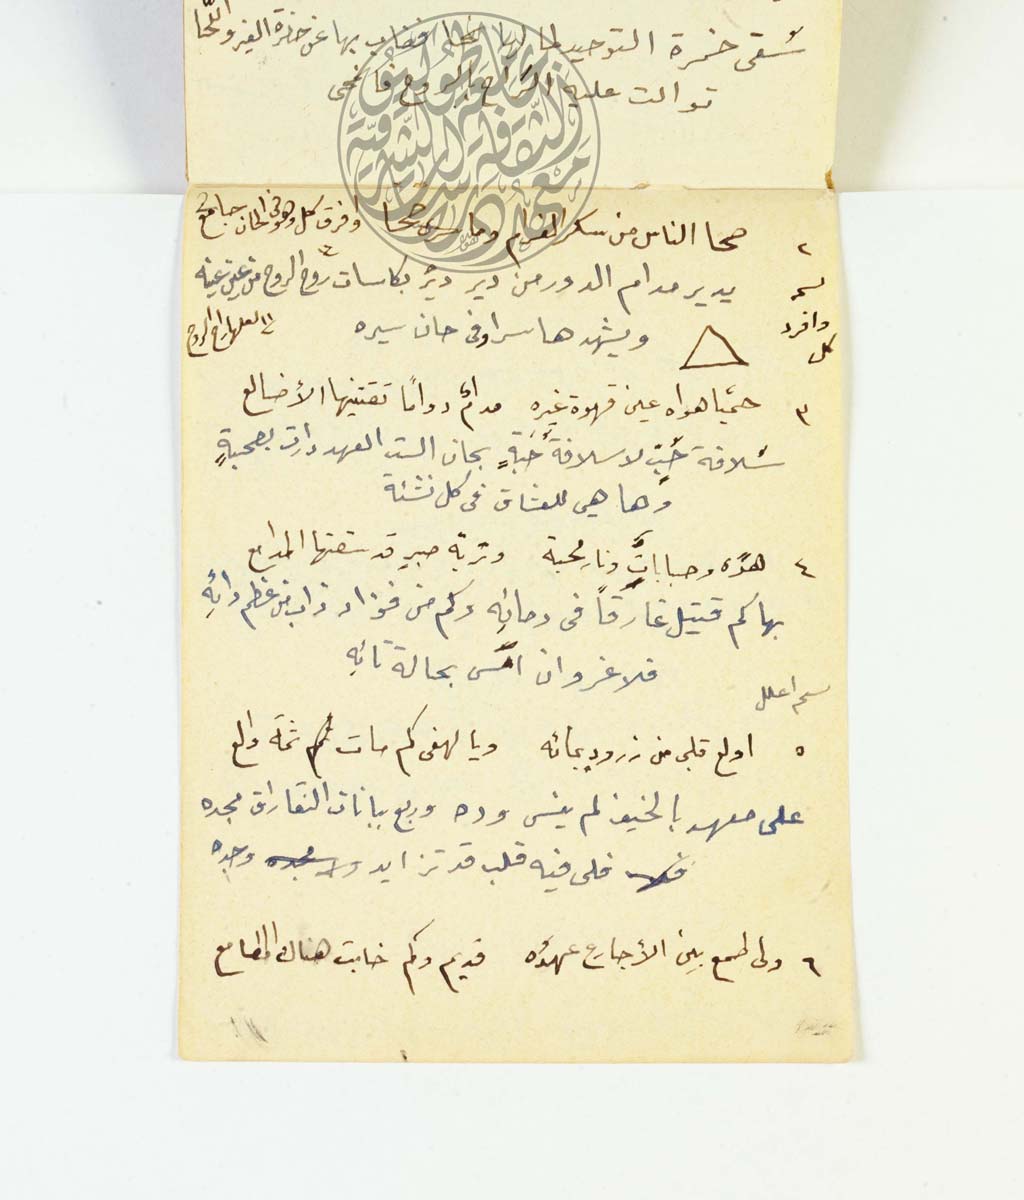 سُقى خمرة التوحيد طالها فغاب بها عن حضرة الغير واللحا
توالت عليه الراح بالروح فانمحى
٢ صحا الناس من سكر الغرام وما صحا وافرق كل وهو في الحان جامع
يسحر يدير مدام الدور من دير ديره بكاسات روح الروح من عين عينه
وافرد كل
ويشهدها سرا وفي حان سيره
٣ حميا هواه عين قهوة غيره مدام دواما تقتنيها الأضالع
سُلافة حُبٍّ لا سلافةُ حَبّةٍ بحان الست العهد دارت بصحبةٍ
وها هي للعشاق في كل نشئة
٤ هوًى وصباباتٌ ونار محبة وتربة صبرٍ قد سقتها المدامع
بها كم قتيل غارقاً في دمائِه وكم من فؤاد ذاب من عظم دائِهِ
فلا غرو ان امسى بحالة تائِهِ
اعلل
٥ اولع قلبي من زرودٍ بمائه ويا لهفي كم مات ثمّة والع
على معهد بالخيف لم ينس وده وربع ببانات النقا راق مجده
فلى فيه قلب قد تزايد وجده
٦ ولي طمع بين الأجارع عهدُه قديم وكم خابت هناك المطامع